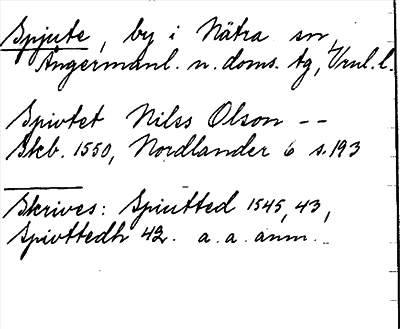 Spjute, by i Nätra sn,
Ångermanl. n. doms. tg, Vnl. l.
Spivtet Nilss Olson --
Skb. 1550, Nordlander 6 s. 193
Skrives: Spiutted 1545, 43,
Spivttedh 42. a. a. anm.